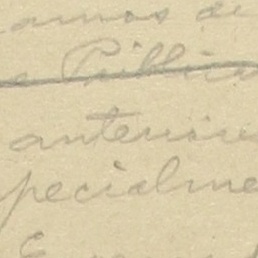 ramos de
e Public
anterior
specialme